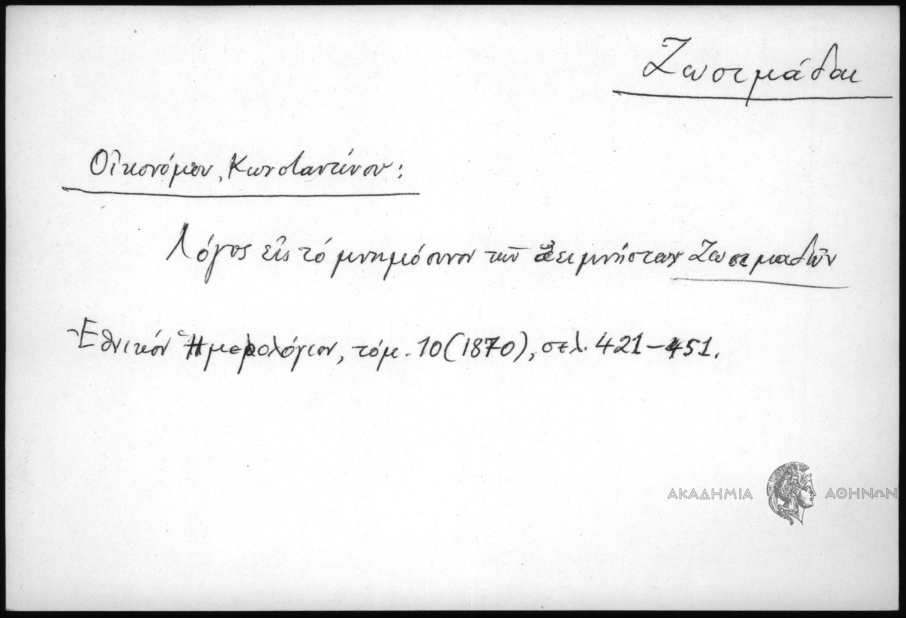 Ζωσιμάδαι
Οἰκονόμου, Κωνσταντίνου:
Λόγος εἰς τό μνημόσυνον τῶν ἀειμνήστων Ζωσιμαδῶν
Ἐθνικόν Ἡμερολόγιον, τόμ. 10 (1870), σελ. 421-451.
ΑΚΑΔΗΜΙΑ ΑΘΗΝΩΝ